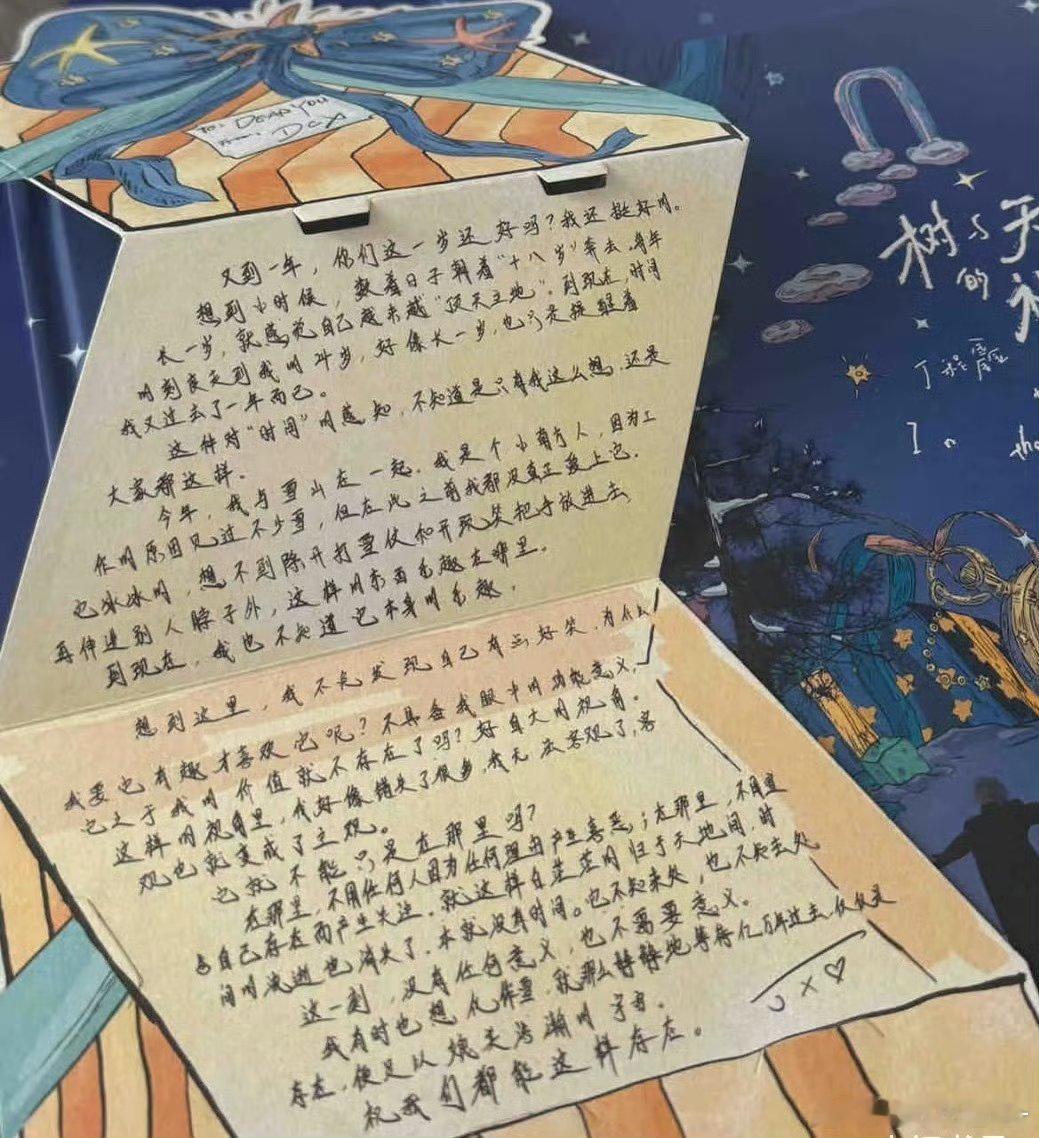 TO: DEAR YOU
From: DCX
又到一年，你们这一岁还好吗？我还挺好的。
想到小时候，数着日子朝着“十八岁”奔去，每年
长一岁，就感觉自己越来越“顶天立地”。到现在，时间
的刻度走到我的24岁，好像长一岁，也只是提醒着
我又过去了一年而已。
这件对“时间”的感知，不知道是只有我这么想，还是
大家都这样。
今年，我与雪山在一起。我是个小南方人，因为工
作的原因见过不少雪，但在此之前我都没真正爱上它。
它冰冰的，想不到除开打雪仗和开玩笑把手放进去
再伸进别人脖子外，这样的东西乐趣在哪里。
到现在，我也不知道它本身的乐趣。
想到这里，我不免发现自己有点好笑，为什么
我要它有趣才喜欢它呢？不具备我眼中的功能意义，
它之于我的价值就不存在了吗？好自大的视角。
这样的视角里，我好像错失了很多，我无法客观了，客
观也就变成了主观。
它就不能只是在那里吗？
在那里，不用任何人因为任何理由产生喜恶；在那里，不用里
与自己存在而产生关注。就这样白茫茫的归于天地间，时
间的流逝也消失了，本就没有时间。也不知来处，也不知去处
这一刻，没有任何意义，也不需要意义。
我有时也想化作雪，就那么静静地等待亿万年过去，仅仅是
存在，便足以撼天浩瀚的宇宙。
祝我们都能这样存在。
X ♡
树与天
的
礼
丁程鑫
In